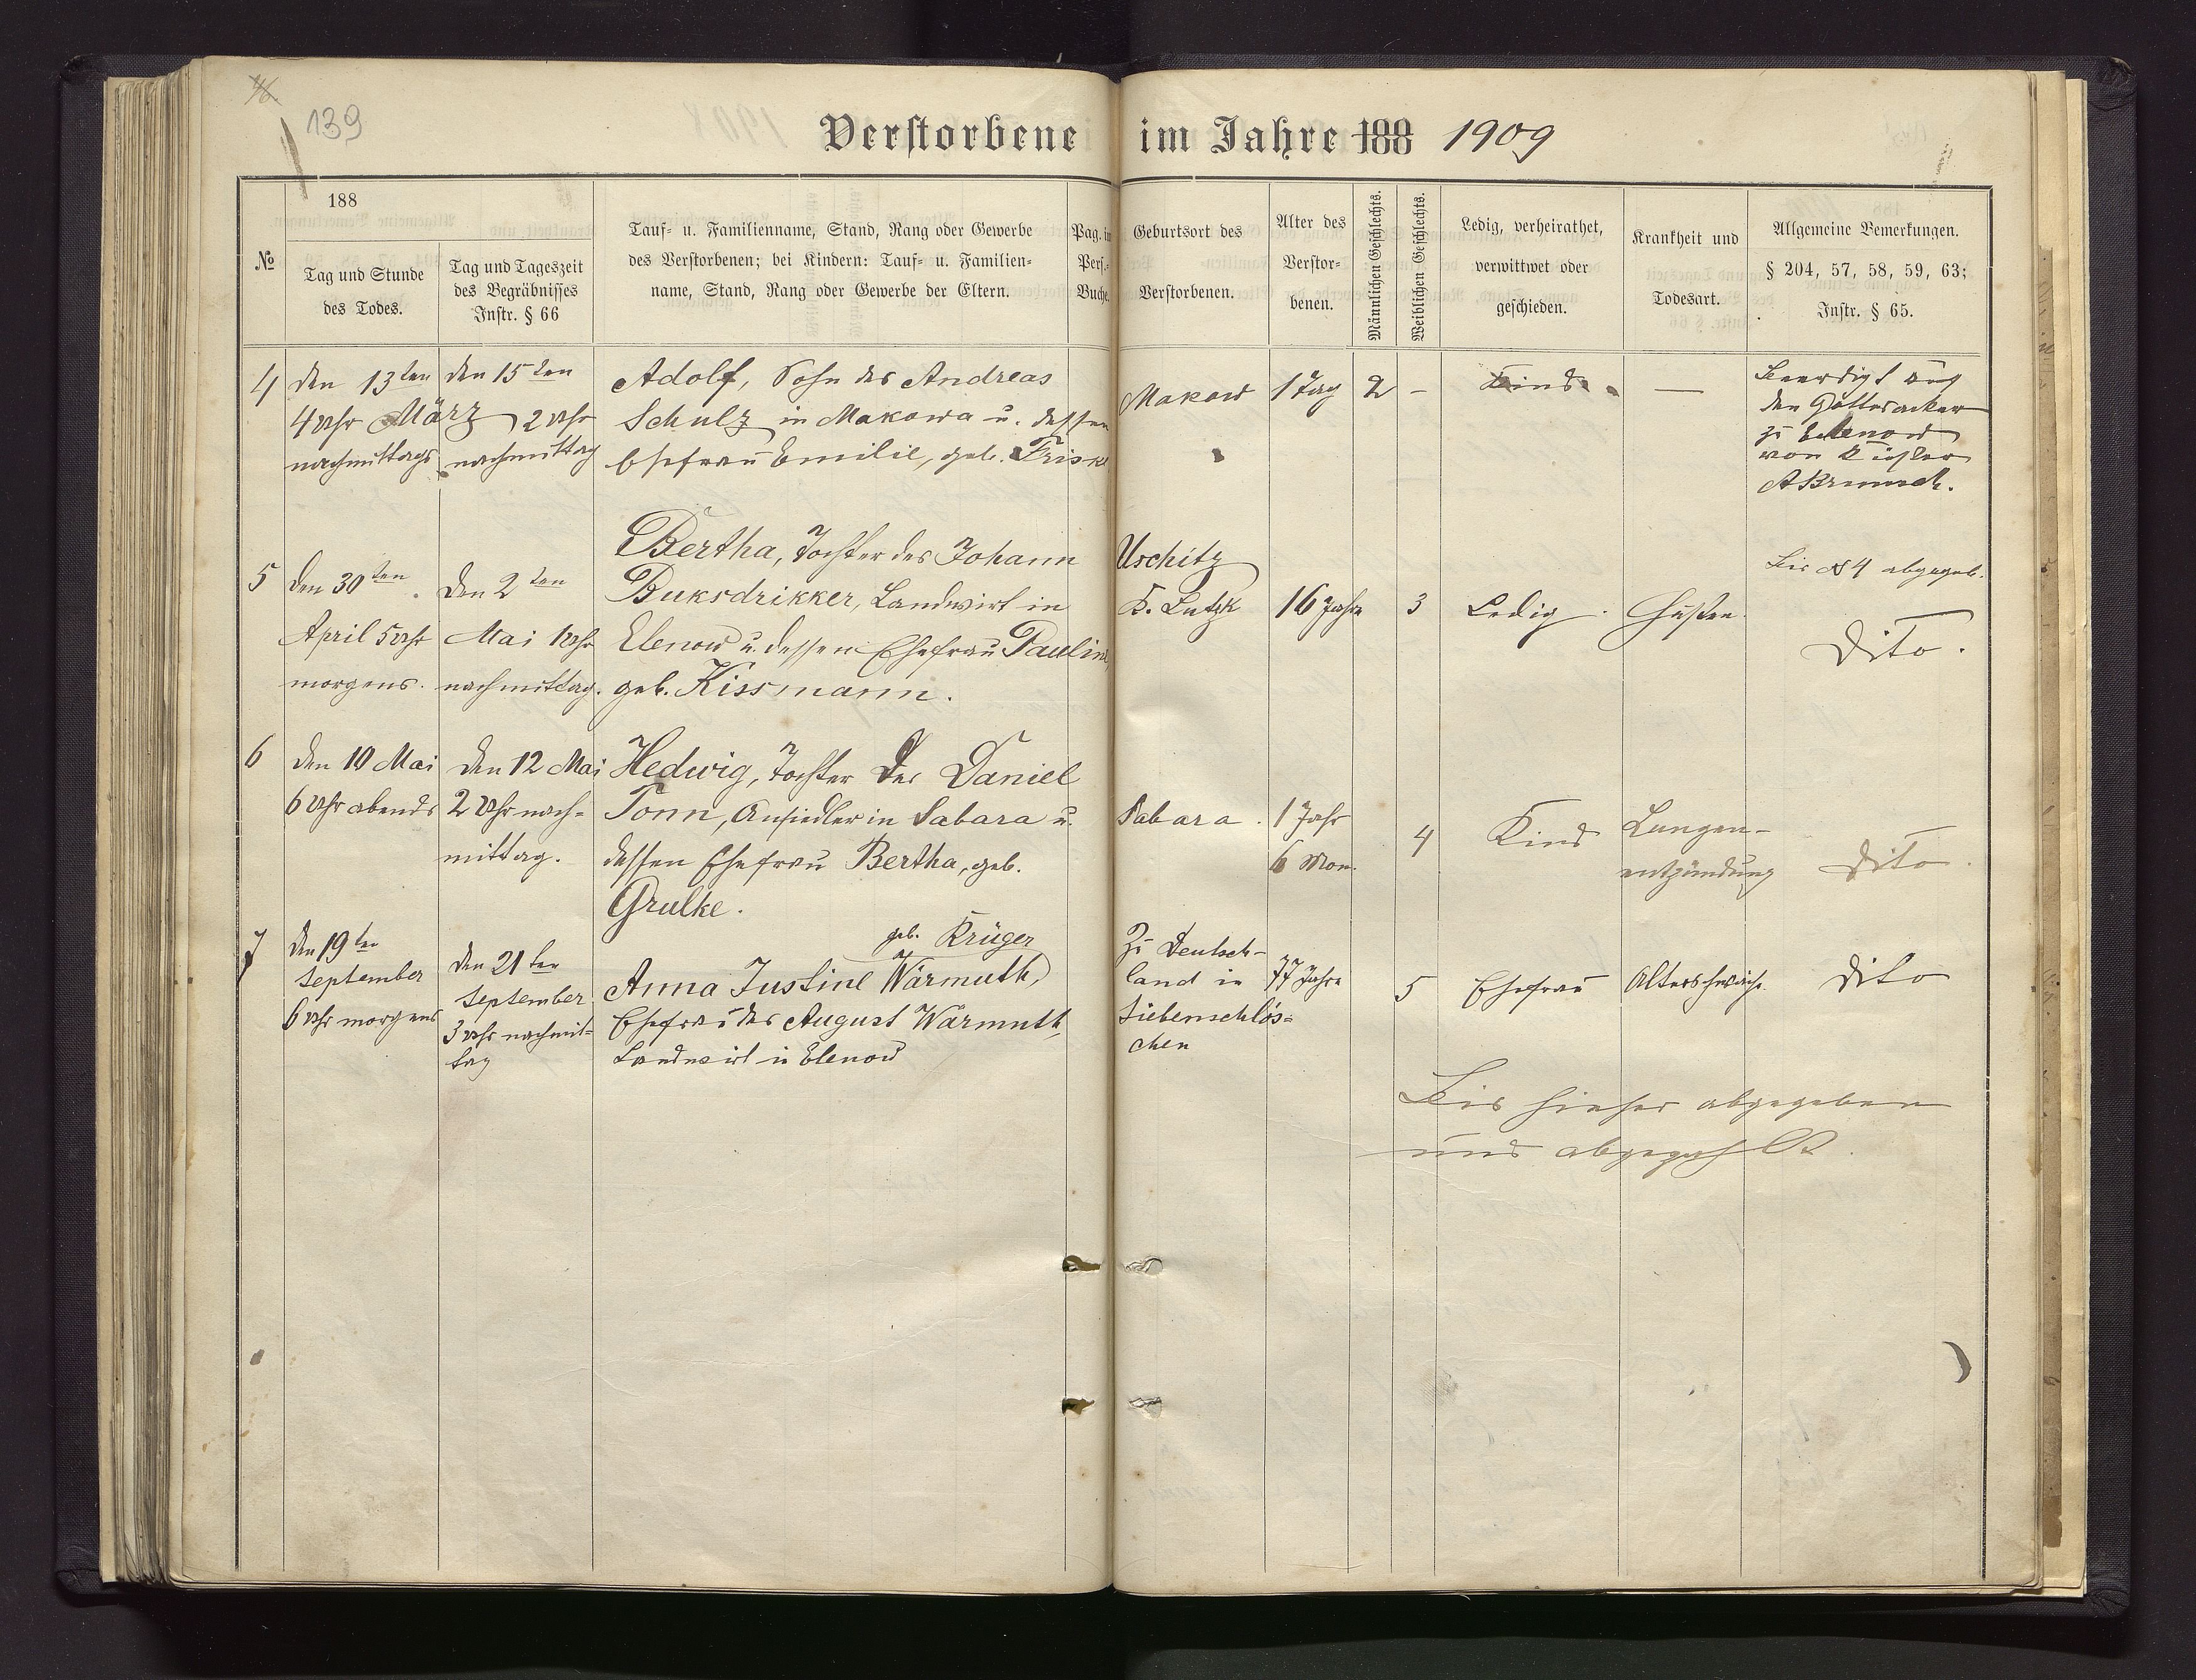 139
Verstorbene im Jahre 188 1909
188
№
Tag und Stunde
des Todes.
Tag und Tageszeit
des Begräbnisses
Instr. § 66
Tauf- u. Familienname, Stand, Rang oder Gewerbe
des Verstorbenen; bei Kindern: Tauf- u. Familien-
name, Stand, Rang oder Gewerbe der Eltern.
Pag. im
Pers.-
Buche.
Geburtsort des
Verstorbenen.
Alter des
Verstor-
benen.
Männlichen Geschlechts.
Weiblichen Geschlechts.
Ledig, verheirathet,
verwittwet oder
geschieden.
Krankheit und
Todesart.
Allgemeine Bemerkungen.
§ 204, 57, 58, 59, 63;
Instr. § 65.
4
den 13ten
4 Uhr März
nachmittags
den 15ten
2 Uhr
nachmittag
Adolf, Sohn des Andreas
Schulz in Makowa u. dessen
Ehefrau Emilie, geb. Friske
Makow
1 Tag
2
–
Kind
—
Beerdigt auf
den Gottesacker
zu Elenow
von Küster
5
den 30ten
April 5 Uhr
morgens.
den 2ten
Mai 1 Uhr
nachmittag.
Bertha, Tochter des Johann
Buksdrikker, Landwirt in
Elenow u. dessen Ehefrau Pauline
geb. Kissmann.
Uschitz
K. Lutzk
16 Jahre
3
Ledig.
Husten.
Bis № 4 abgegeb.
Dito.
6
den 10 Mai
6 Uhr abends
den 12 Mai
2 Uhr nach-
mittag.
Hedwig, Tochter des Daniel
Tonn, Ansiedler in Sabara u.
dessen Ehefrau Bertha, geb.
Grulke.
Sabara.
1 Jahr
6 Mon.
4
Kind
Lungen-
entzündung
Dito.
7
den 19ten
September
6 Uhr morgens
den 21ten
September
3 Uhr nachmit-
tag
geb. Krüger
Anna Justine Wärmuth,
Ehefrau des August Wärmuth,
Landwirt in Elenow
Zu Deutsch-
land in
Siebenschlös-
chen
77 Jahre
5
Ehefrau
Altersschwäche.
Dito
Bis hieher abgegeben
und abgezahlt.